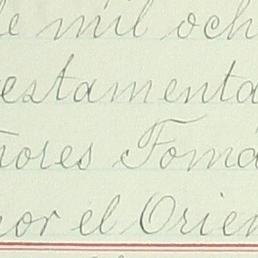 de mil och
estamenta
ñores Tomá
por el Orien